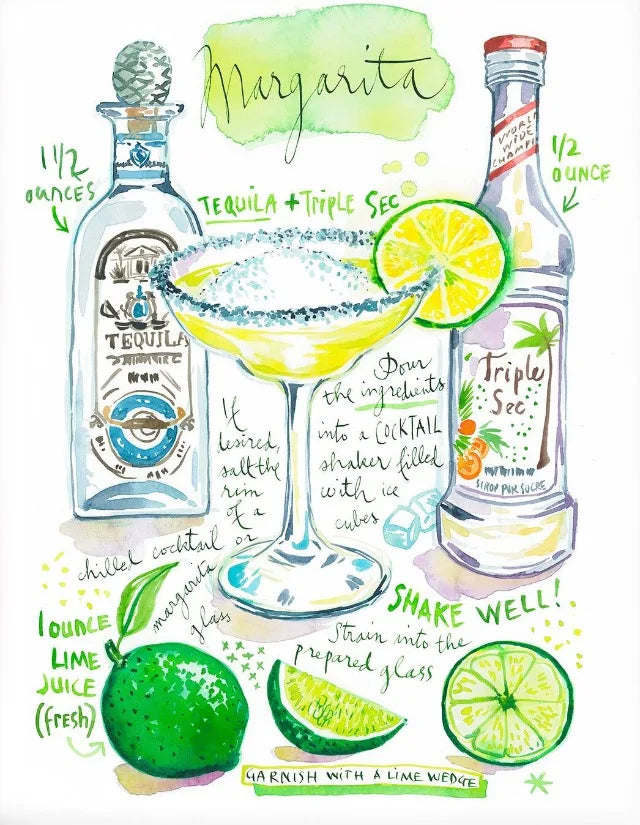 Margarita
1 1/2
OUNCES
TEQUILA + TRIPLE SEC
1/2
OUNCE
WORLD
WIDE
CHAMPI
TEQUILA
Triple
Sec
SIROP PUR SUCRE
If
desired,
salt the
rim
of a
chilled cocktail or
margarita
glass
Pour
the ingredients
into a COCKTAIL
shaker filled
with ice
cubes
SHAKE WELL!
Strain into the
prepared glass
1 OUNCE
LIME
JUICE
(fresh)
GARNISH WITH A LIME WEDGE